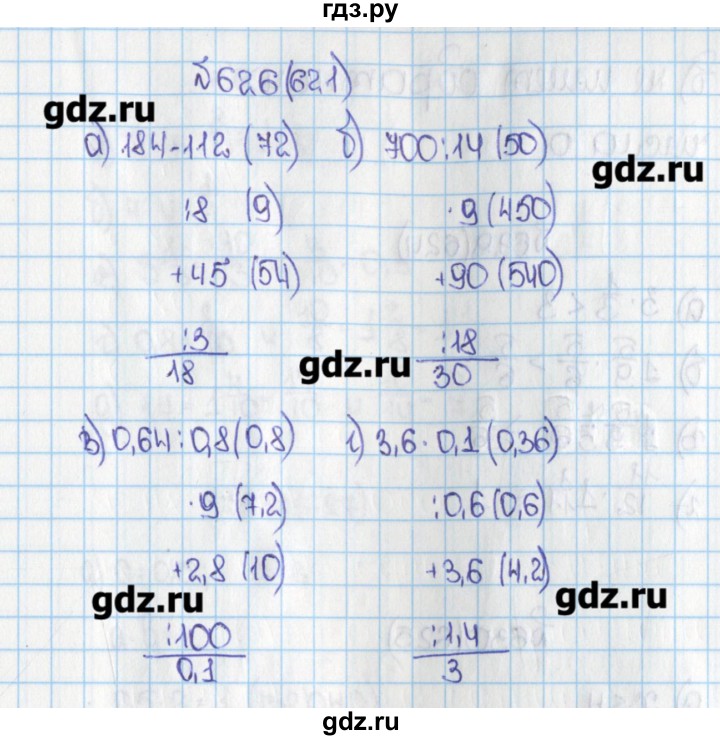 гдз.ру
№626(621)
gdz.ru
а) 184-112 (72) б) 700:14 (50)
gdz.ru
:8 (9) ·9 (450)
+45 (54) +90 (540)
:3 :18
gdz.ru
18 30
в) 0,64:0,8 (0,8) г) 3,6·0,1 (0,36)
·9 (7,2) :0,6 (0,6)
+2,8 (10) +3,6 (4,2)
gdz.ru gdz.ru
:100 :1,4
0,1 3
gdz.ru